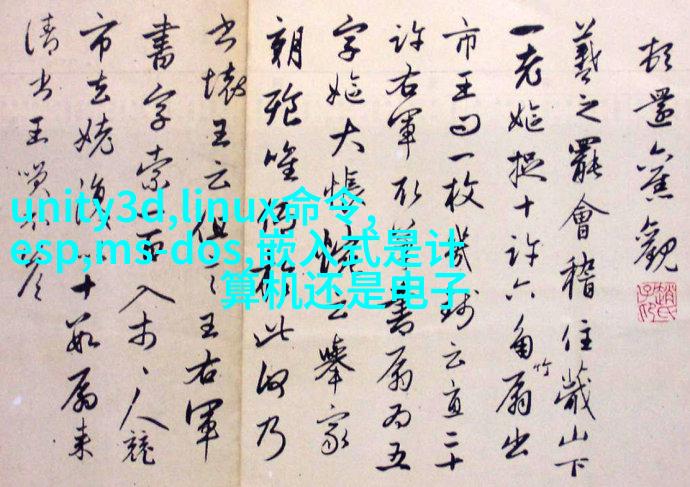 頓還舊觀
羲之罷會稽住蕺山下
一老嫗捉十許六角竹扇出
市王問一枚幾錢云直二十
許右軍取筆書扇為五
字嫗大悵惋云舉家
朝飱唯仰於此何乃
書壞王云但言王右軍
書字索一百入市、人競
市去姥復以十數扇來
請書王笑不答
趙氏子昂
unity3d,linux命令,
esp,ms-dos,嵌入式是计
算机还是电子